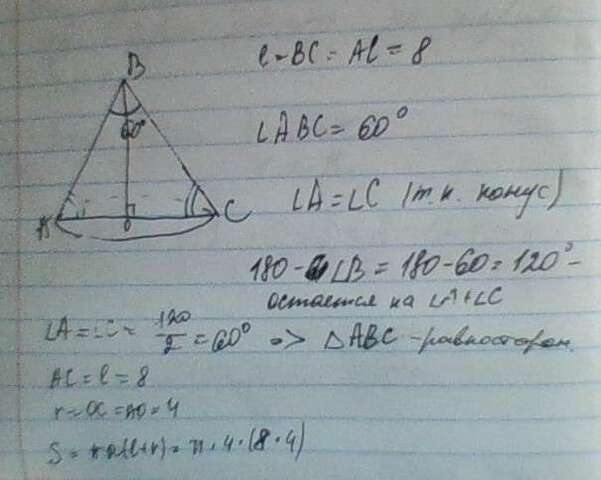 B
60°
A
C
0
l = BC = AC = 8
∠ABC = 60°
∠A = ∠C (т.к. конус)
180 - ∠B = 180 - 60 = 120° -
остается на ∠A + ∠C
∠A = ∠C = 120/2 = 60° => △ABC - равносторон.
AC = l = 8
r = OC = AO = 4
S = πr(l+r) = π · 4 · (8 · 4)